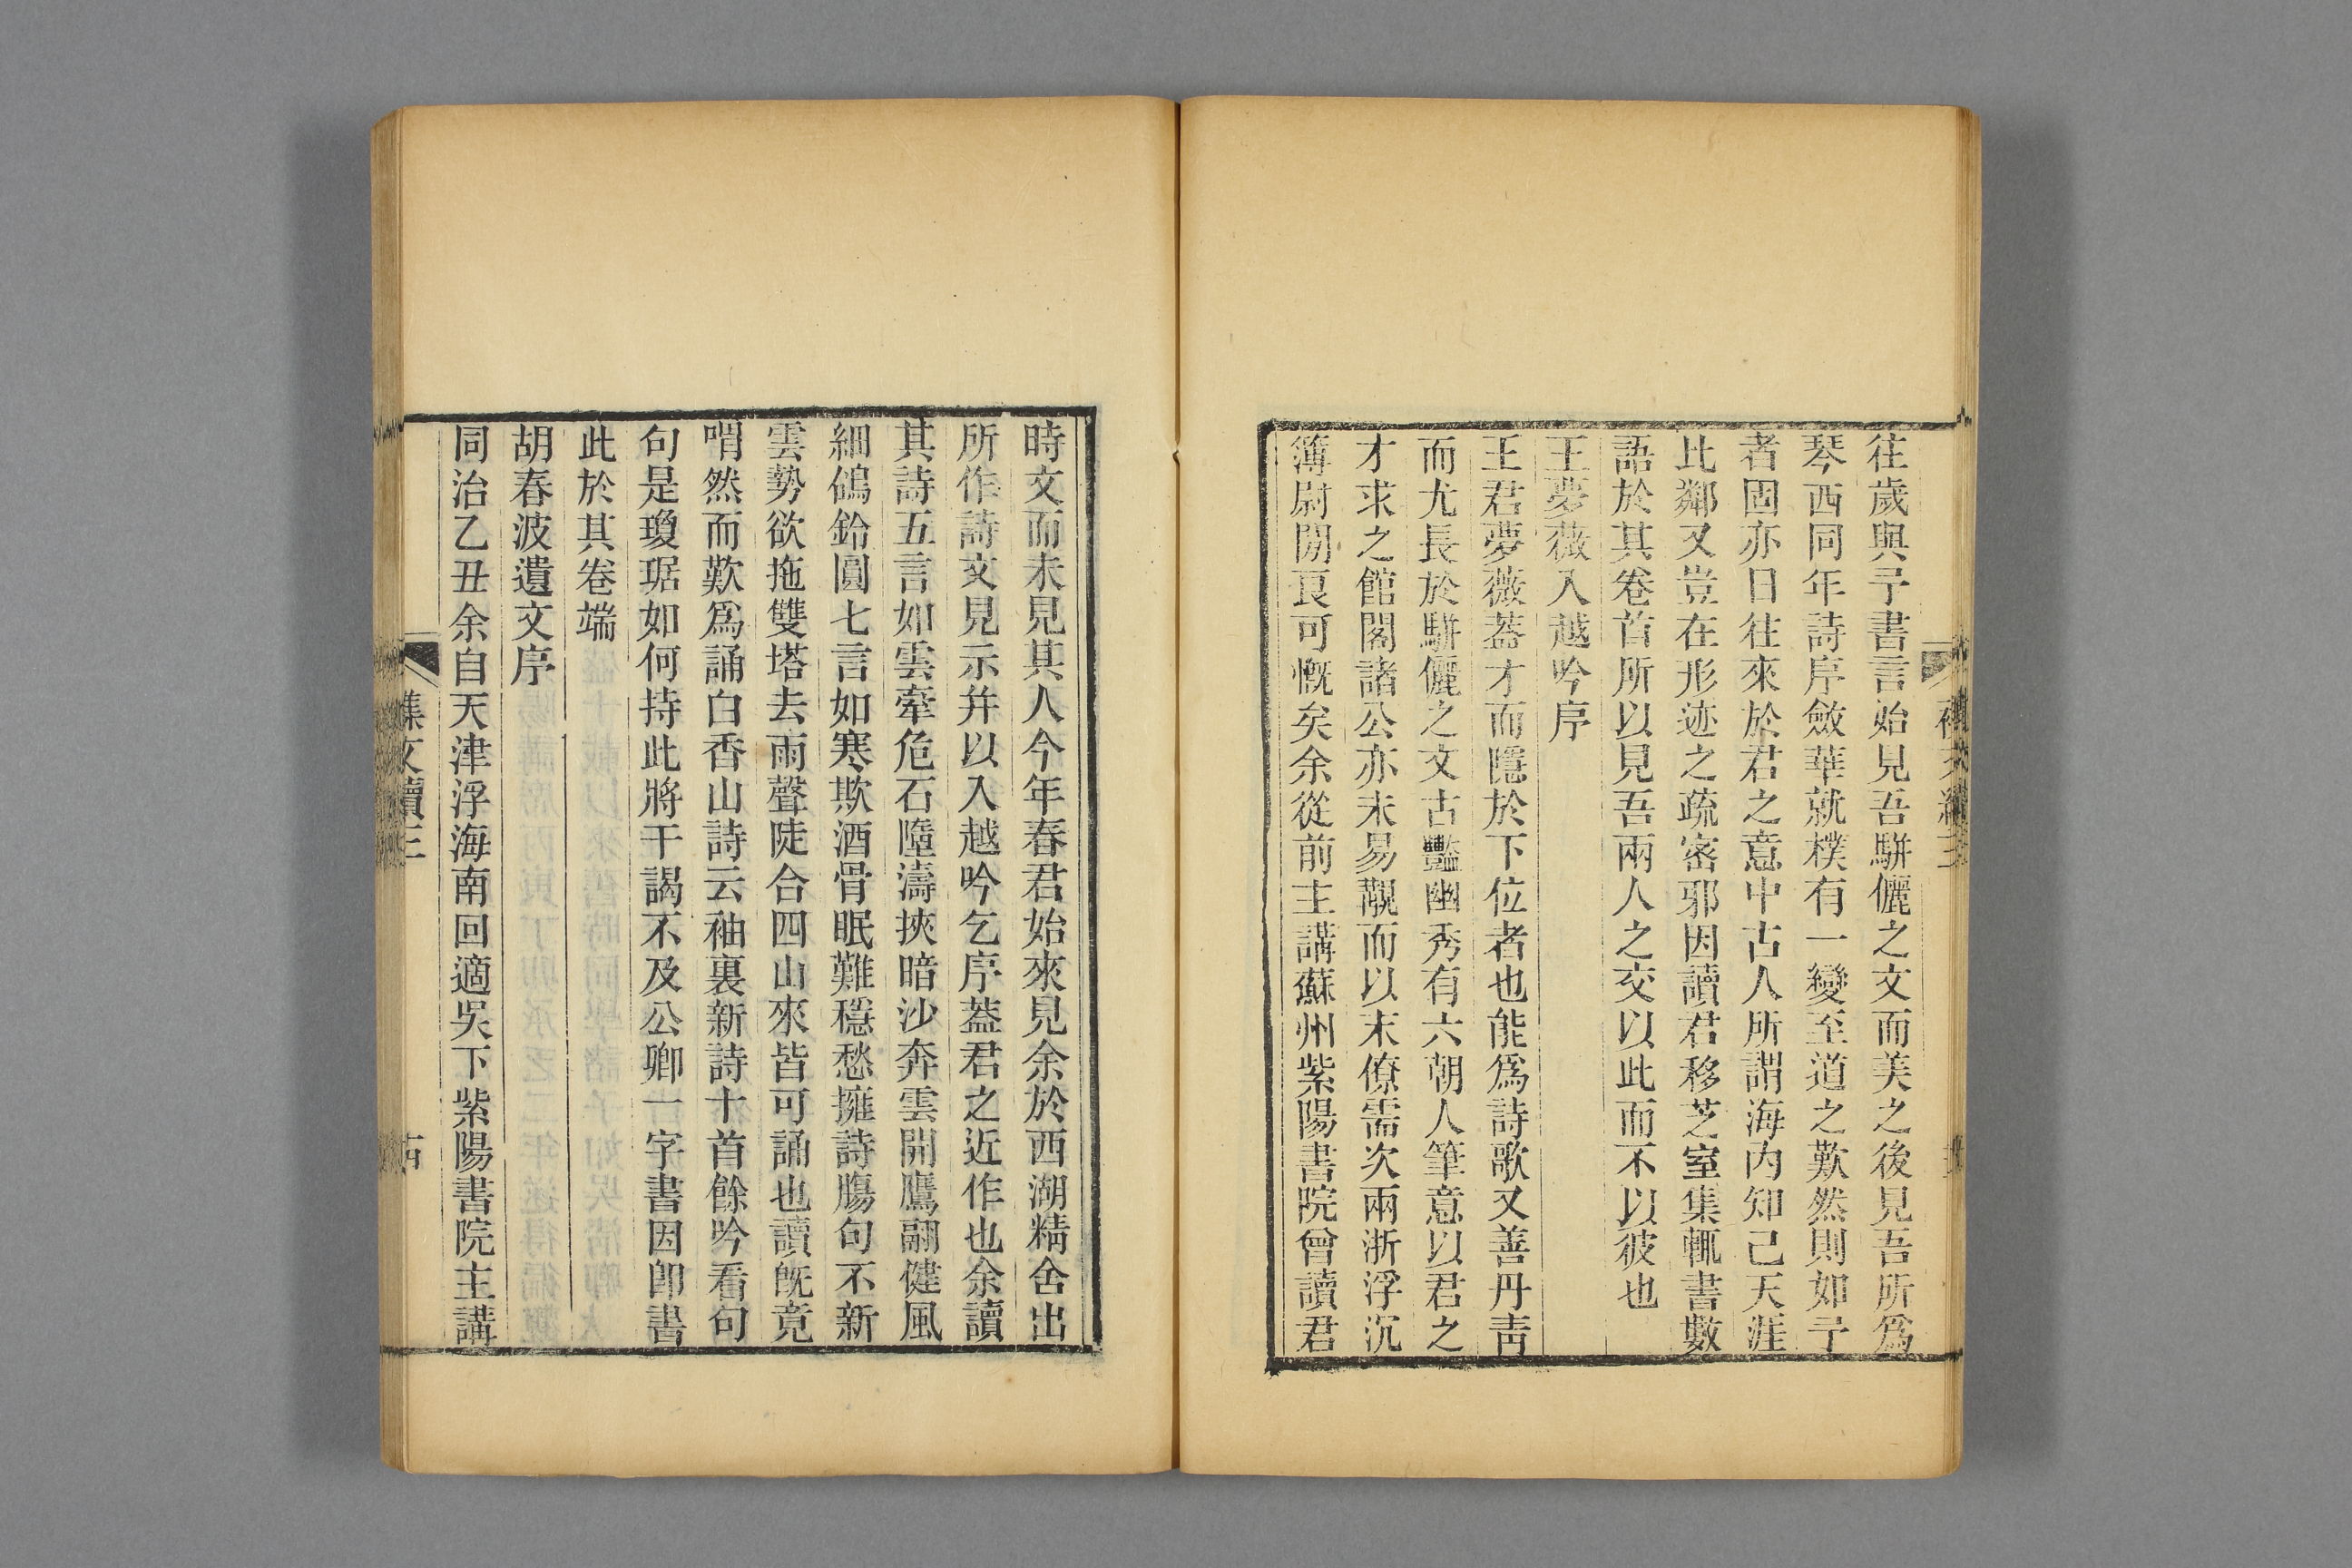 往歲與予書言始見吾駢儷之文而美之後見吾所爲
琴西同年詩序斂華就樸有一變至道之歎然則如予
者固亦日往來於君之意中古人所謂海內知己天涯
比鄰又豈在形迹之疏密邪因讀君移芝室集輒書數
語於其卷首所以見吾兩人之交以此而不以彼也
王夢薇入越吟序
王君夢薇蓋才而隱於下位者也能爲詩歌又善丹靑
而尤長於駢儷之文古豔幽秀有六朝人筆意以君之
才求之館閣諸公亦未易覯而以末僚需次兩浙浮沉
簿尉閒良可慨矣余從前主講蘇州紫陽書院曾讀君
時文而未見其人今年春君始來見余於西湖精舍出
所作詩文見示并以入越吟乞序蓋君之近作也余讀
其詩五言如雲牽危石墮濤挾暗沙奔雲開鷹翮健風
細鴿鈴圓七言如寒欺酒骨眠難穩愁擁詩膓句不新
雲勢欲拖雙塔去雨聲陡合四山來皆可誦也讀旣竟
喟然而歎爲誦白香山詩云袖裏新詩十首餘吟看句
句是瓊琚如何持此將干謁不及公卿一字書因卽書
此於其卷端
胡春波遺文序
同治乙丑余自天津浮海南回適吳下紫陽書院主講
集文續三